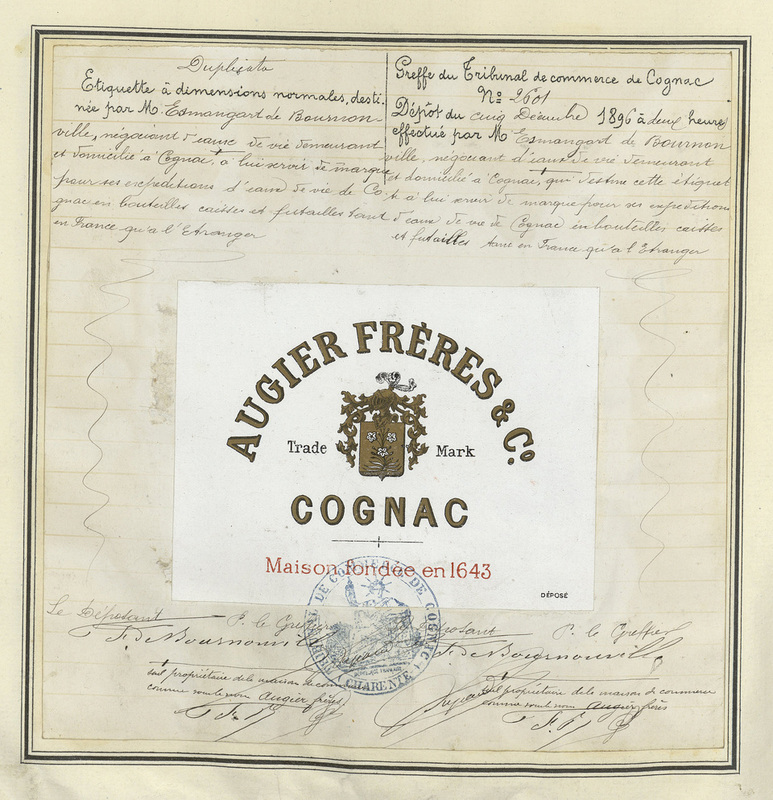 Duplicata
Etiquette à dimensions normales, desti-
née par M. Esmangart de Bournon-
ville, négociant d'eaux de vie demeurant
et domicilié à Cognac, à lui servir de marque
pour ses expéditions d'eaux de vie de Co-
gnac en bouteilles caisses et futailles tant
en France qu'à l'Etranger
Greffe du Tribunal de commerce de Cognac
No 2601
Dépôt du cinq Décembre 1896 à deux heures
effectué par M Esmangart de Bournon
ville, négociant d'eaux de vie demeurant
et domicilié à Cognac, qui destine cette étiquet
te à lui servir de marque pour ses expéditions
d'eaux de vie de Cognac en bouteilles caisses
et futailles tant en France qu'à l'Etranger
AUGIER FRÈRES & Co.
Trade Mark
COGNAC
Maison fondée en 1643
DÉPOSÉ
TRIBUNAL DE COMMERCE DE COGNAC
CHARENTE
Le Déposant P. le Greffier
F. de Bournonville
seul propriétaire de la maison de com
connue sous le nom Augier frères
Déposant P. le Greffier
F. de Bournonville
seul propriétaire de la maison de commerce
connue sous le nom Augier frères